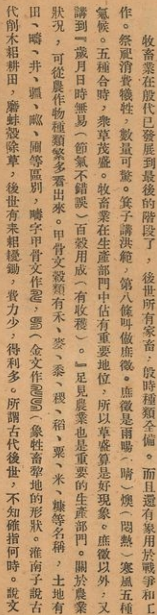 牧畜業在殷代已發展到最後的階段了，後世所有家畜，殷時種類全備。而且還有象用於戰爭和工
作。祭祀清養犧牲，數量可驚。箕子講洪範，第八條叫做庶徵。庶徵是雨暘（晴）燠（悶熱）寒風五種
氣候。五種合時，衆草茂盛。牧畜業在生產部門中佔有重要地位，所以草盛算是好現象。庶徵以外，又
講到『歲月日時無易（節氣不錯誤）百穀用成（有收穫）。』足見農業也是重要的生產部門。關於農業
狀況，可從農作物種類繁多看出來。甲骨文穀類有禾、麥、黍、稷、稻、粟、米、糠等名稱，土地有
田、疇、井、疆、畝、圃等區別，疇字甲骨文作（金文作（象牲畜犂地的形狀。淮南子說古
代削木耜耕田，磨蚌殼除草，後世有耒耜耰鋤，費力少，得利多。所謂古代後世，不知確指何時。說文